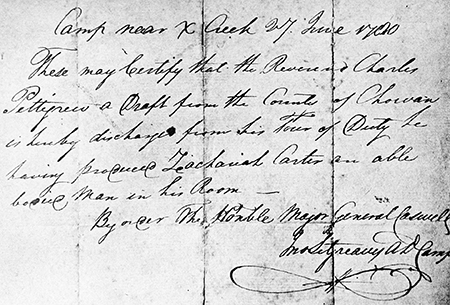 Camp near X Creek 27 June 1780
These may Certify that the Reverend Charles
Pettigrew a Draft from the County of Chowan
is hereby discharg'd from his Tour of Duty he
having produced Zachariah Carter an able
bodied Man in his Room —
By order The Honble Major General Caswell
Jno Fitzreavy A D Camp